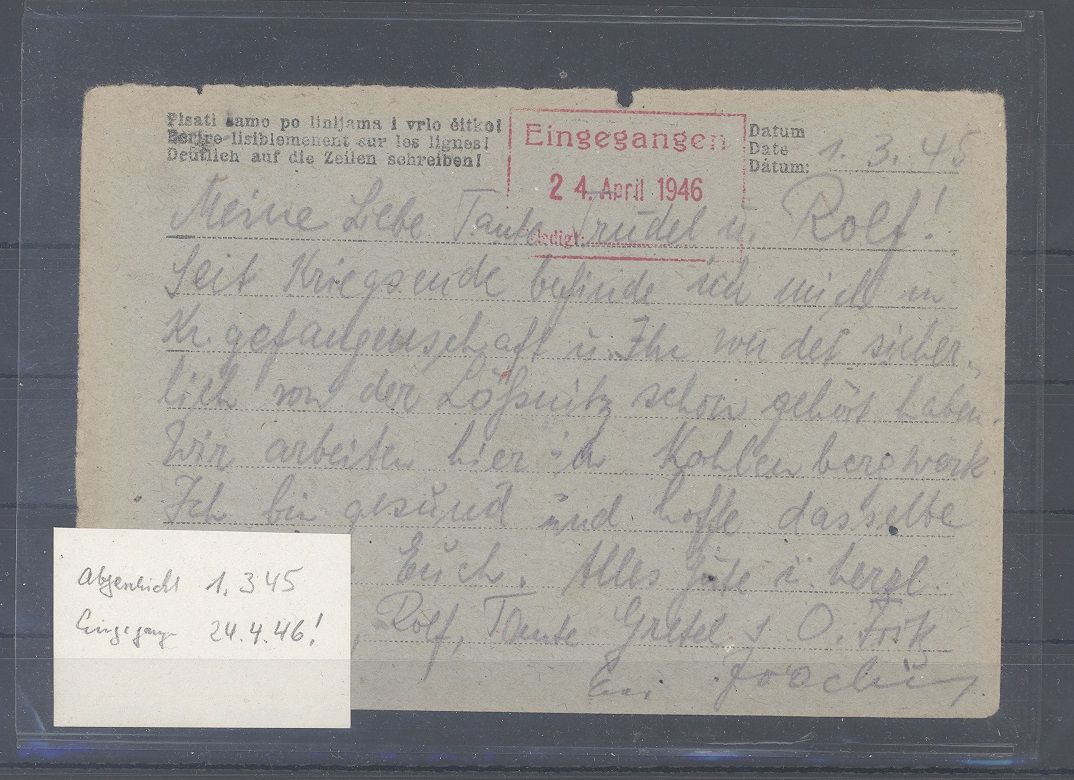 Pisati samo po linijama i vrlo čitko!
Ecrire lisiblement sur les lignes!
Deutlich auf die Zeilen schreiben!
Eingegangen
24. April 1946
ledigt:
Datum
Date
Dátum:
1. 3. 45
Meine Liebe Tante Trudel u. Rolf!
Seit Kriegsende befinde ich mich in
Kr. gefangenschaft u. Ihr werdet sicher-
lich von der Lößnitz schon gehört haben.
Wir arbeiten hier in Kohlenbergwerk.
Ich bin gesund und hoffe dasselbe
Euch. Alles Gute u herzl
, Rolf, Tante Gretel u O.
Euer Joachim
Abgeschickt 1. 3 45
Eingegangen 24. 4. 46!